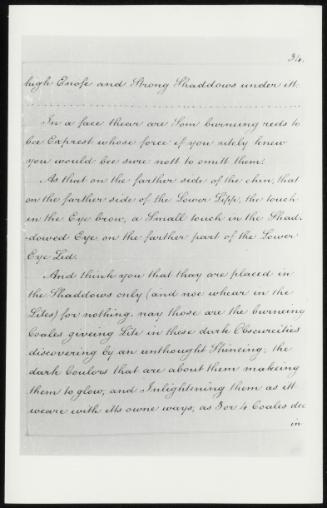 34.
high Enofe and Strong Shaddows under it.
In a face thear are Som burning reeds to
bee Exprest whose force if you ritely knew
you would bee sure nott to omitt them:
As that on the farther side of the chin, that
on the farther side of the Lower Lipp, the touch
in the Eye brow, a Small touch in the Shad-
-dowed Eye on the farther part of the Lower
Eye Led.
And think you that thay are placed in
the Shaddows only (and noe whear in the
Lites) for nothing. nay those are the burning
Coales giveing Life in those dark Obscureties
discovering by an unthought Shineing, the
dark Coulors that are about them makeing
them to glow, and Inlightening them as itt
weare with itts owne ways, as 3 or 4 Coales doe
in